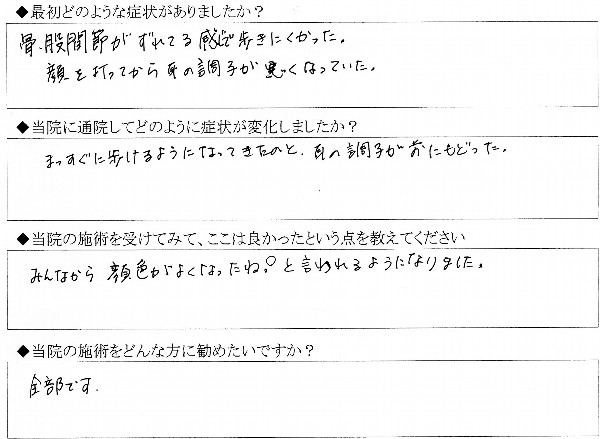 ◆最初どのような症状がありましたか？
骨、股関節がずれてる感じで歩きにくかった。
顔を打ってから耳の調子が悪くなっていた。
◆当院に通院してどのように症状が変化しましたか？
まっすぐに歩けるようになってきたのと、耳の調子が前にもどった。
◆当院の施術を受けてみて、ここは良かったという点を教えてください
みんなから顔色がよくなったね。と言われるようになりました。
◆当院の施術をどんな方に勧めたいですか？
全部です.